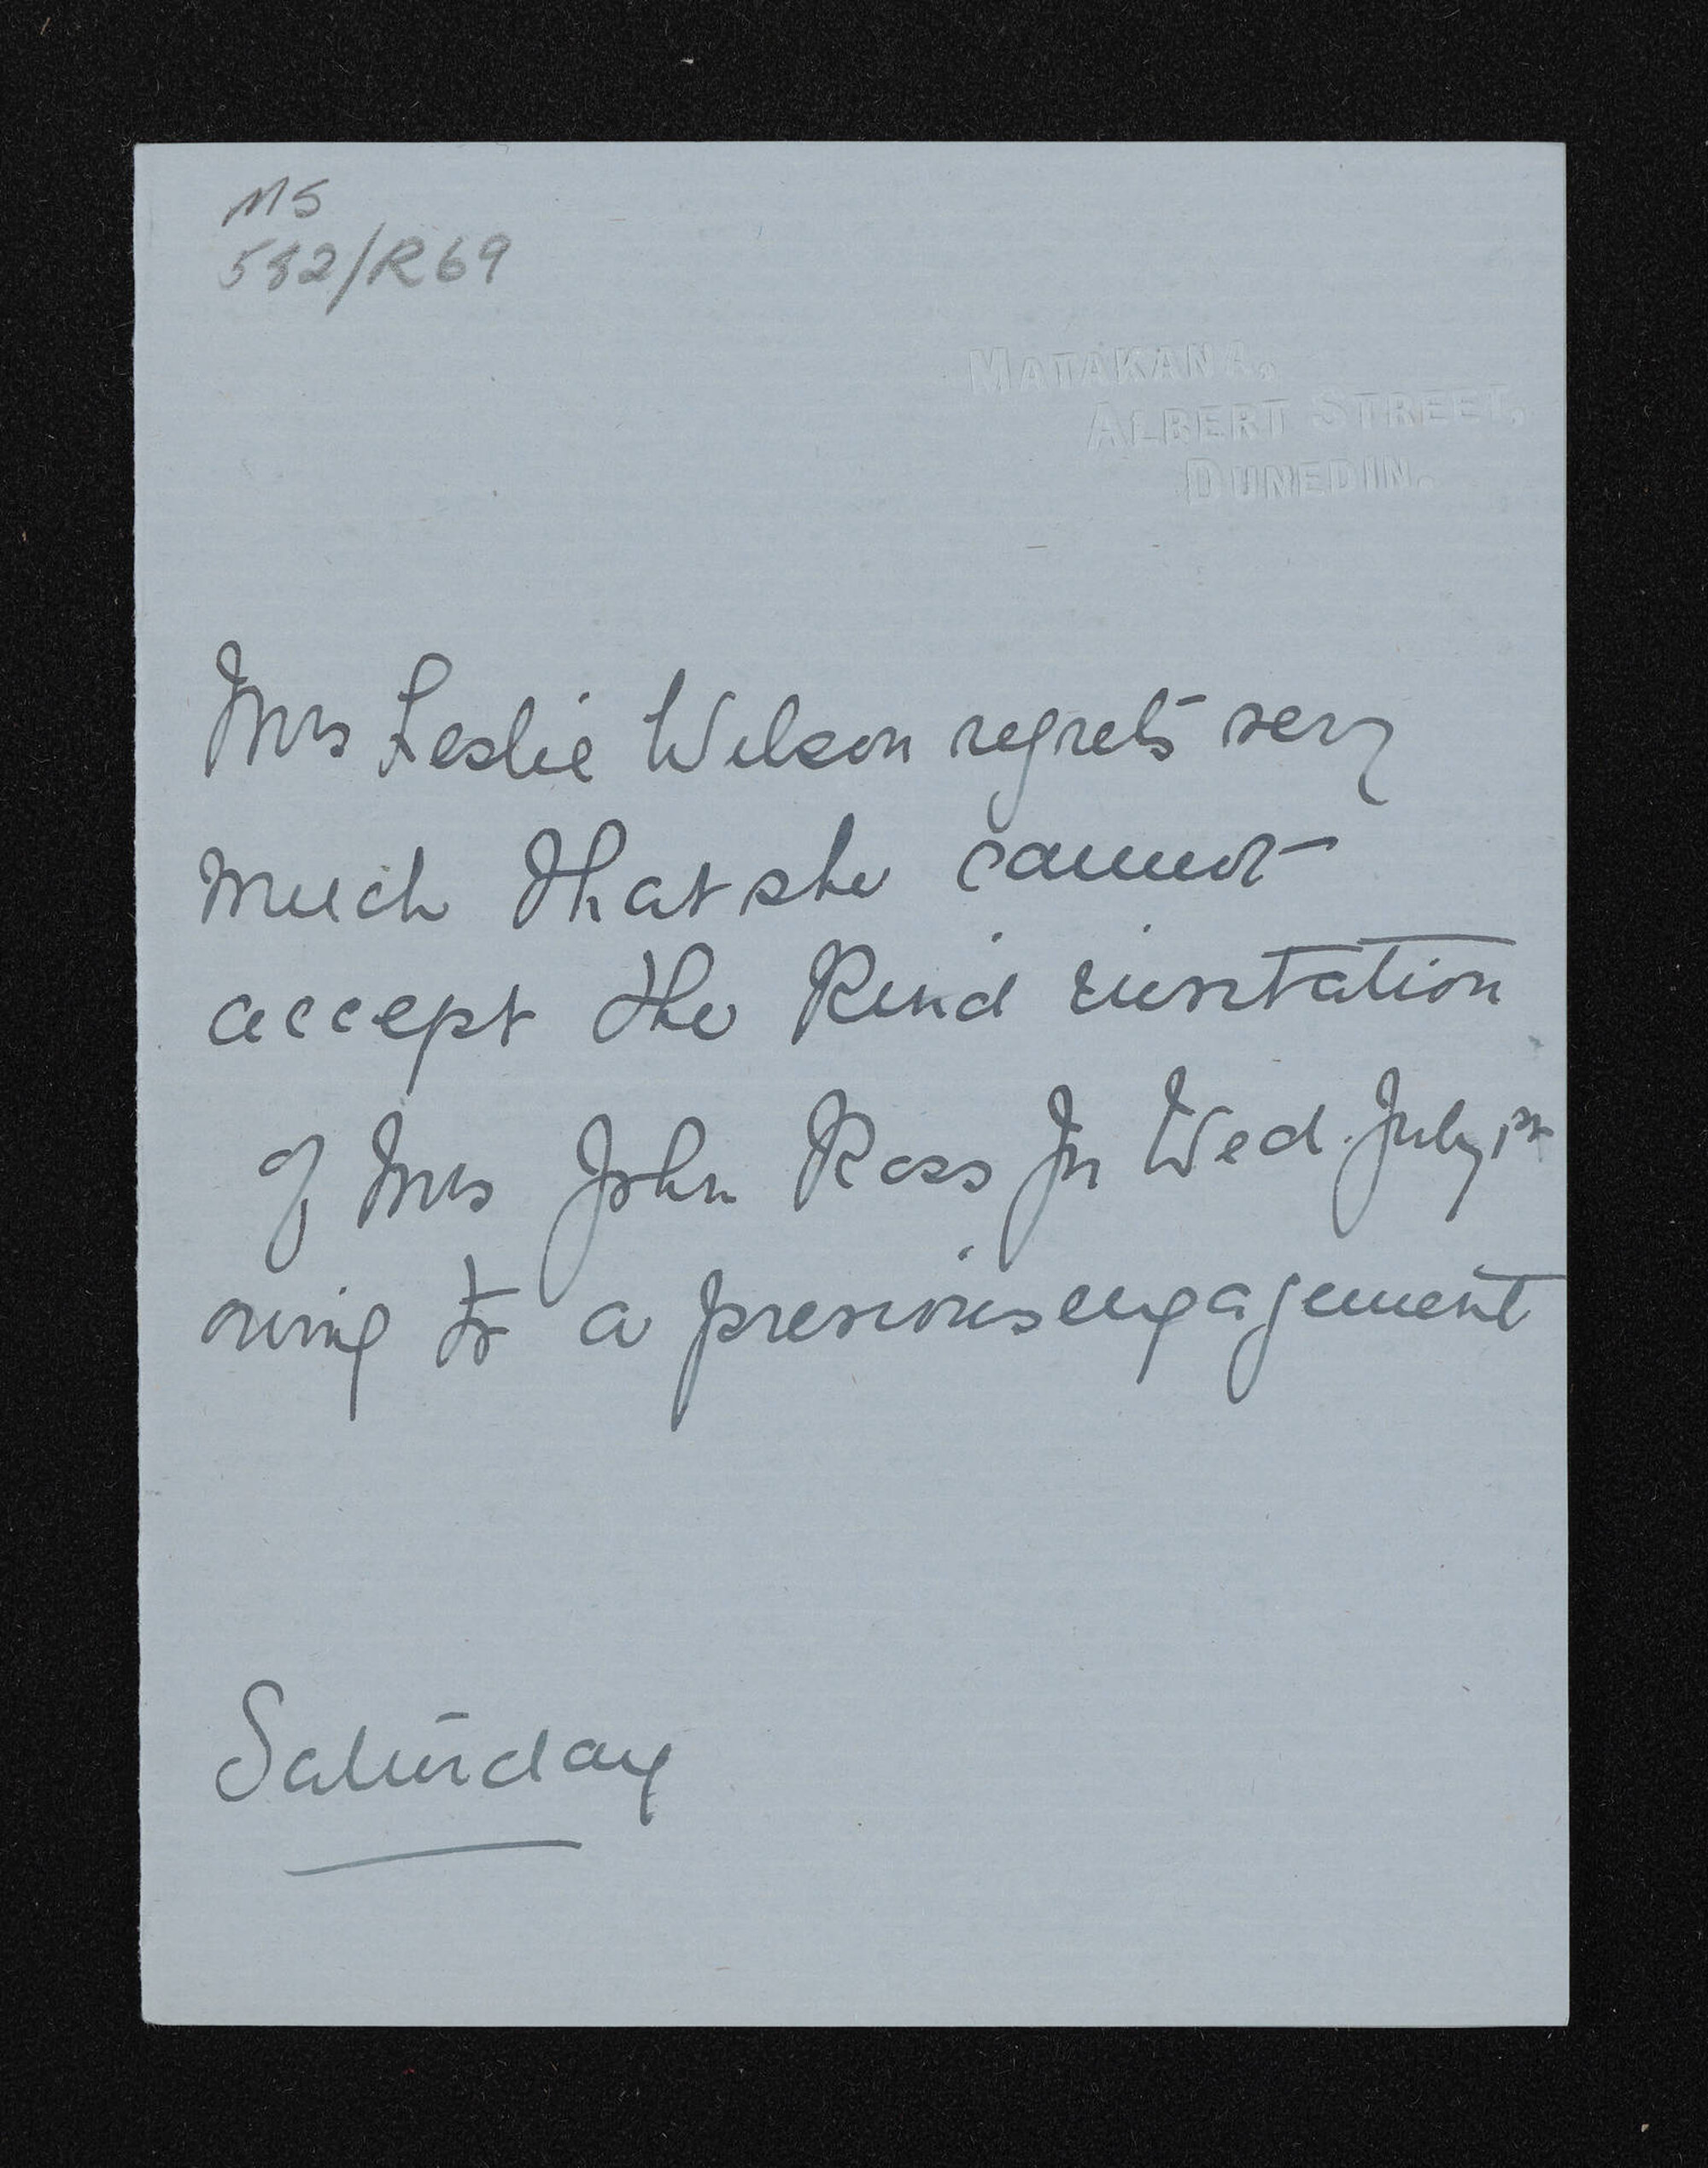 MS
582/R69
MATAKANA,
ALBERT STREET,
DUNEDIN.
Mrs Leslie Wilson regrets very
much that she cannot
accept the kind invitation
of Mrs John Ross for Wed. July 1st
owing to a previous engagement
Saturday